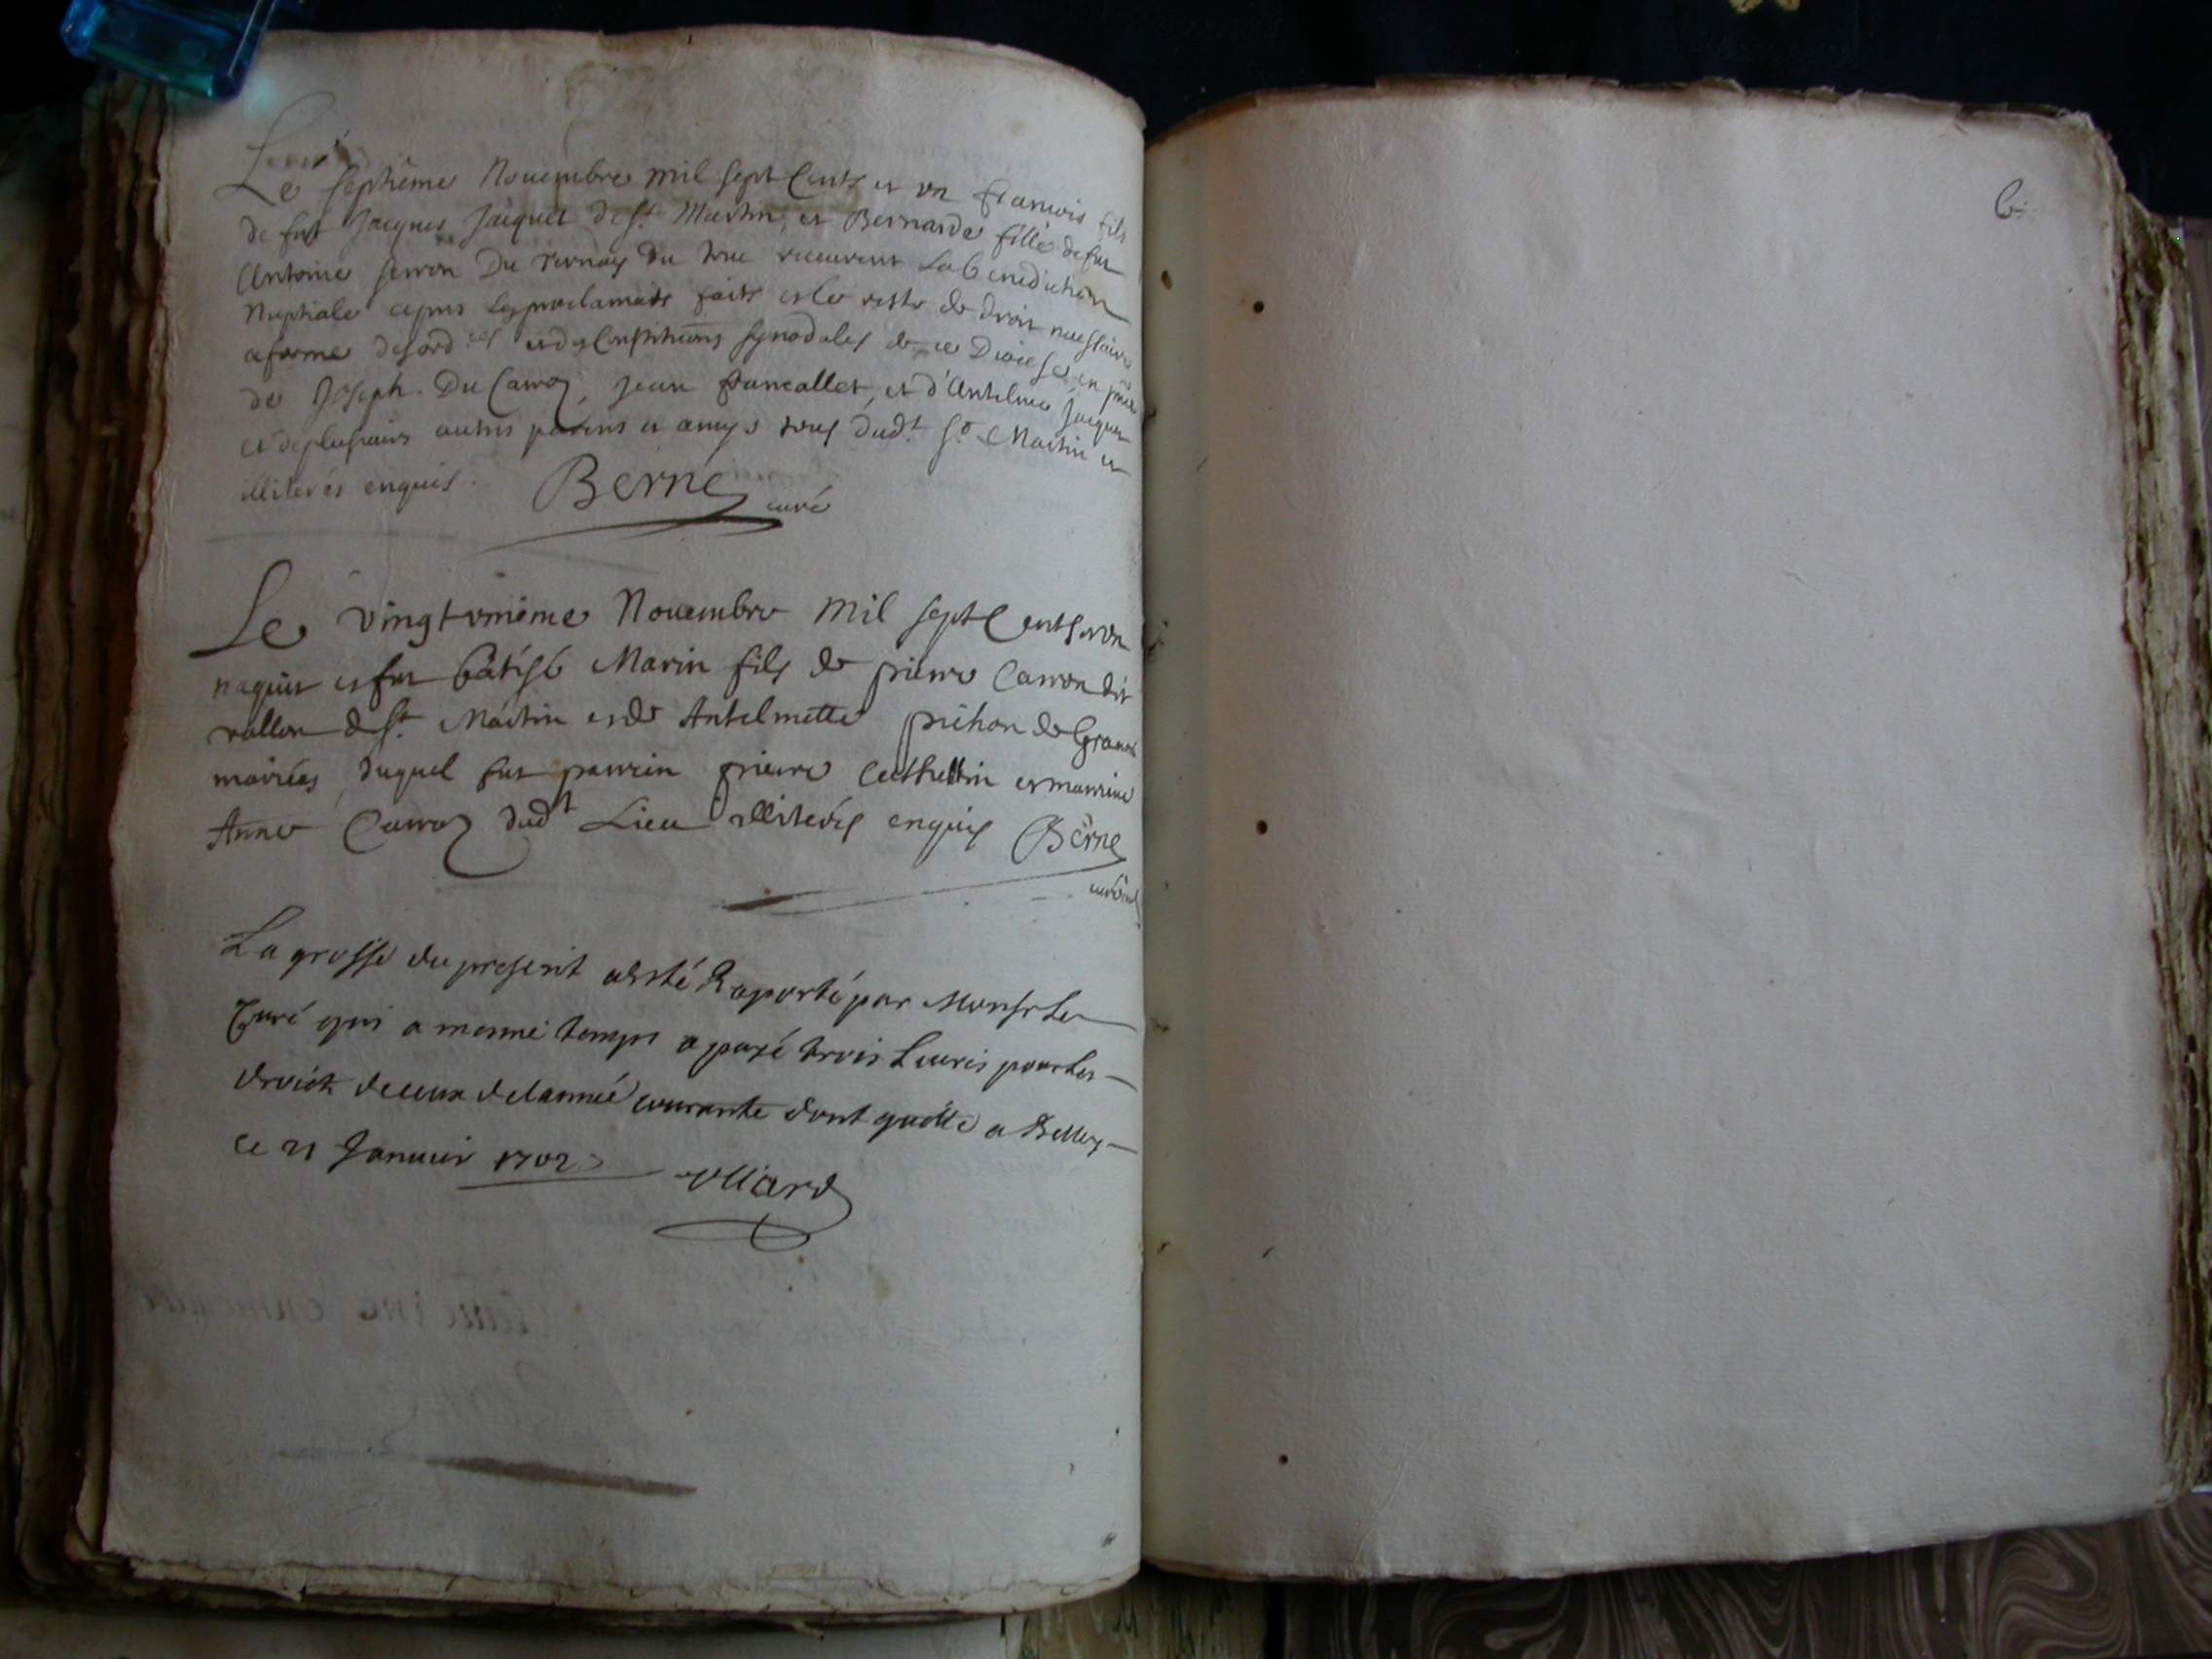 Le septième Novembre mil sept Cents et un francois fils
de fut Jacques Jacquet de St. Martin, et Bernarde fille de fut
Antoine Du receurent La benediction
Nuptiale apres les proclamats faits et le reste de droit necessaire
a forme des ord.ces et des Constitutions synodales de ce Diocese, en pnce
de Joseph Du Carroz, Jean francallet, et d'Antelme Jacquet
et de plusieurs autres parens et amys tous dudt. St. Martin et
illiterés enquis. Berne curé
Le vingt unième Novembre mil sept Cents et un
naquit et fut batisé Marin fils de pierre Carron dit
vallon de St. Martin et de Antelmette pichon de Grands
mariées, duquel fut parrin pierre et marrine
Anne Carroz dudt Lieu illiterés enquis Berne
curé
La grosse du present a esté Raporté par Monsr Le
Curé qui a mesme temps a payé trois Livres pour les
droicts de ceux de lannée courante dont quitte a Belley
ce 21 Janvier 1702
6